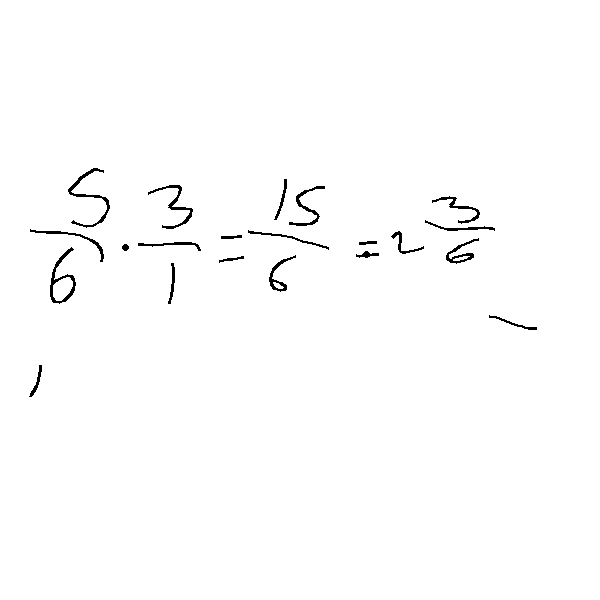 5/6 · 3/1 = 15/6 = 2 3/6